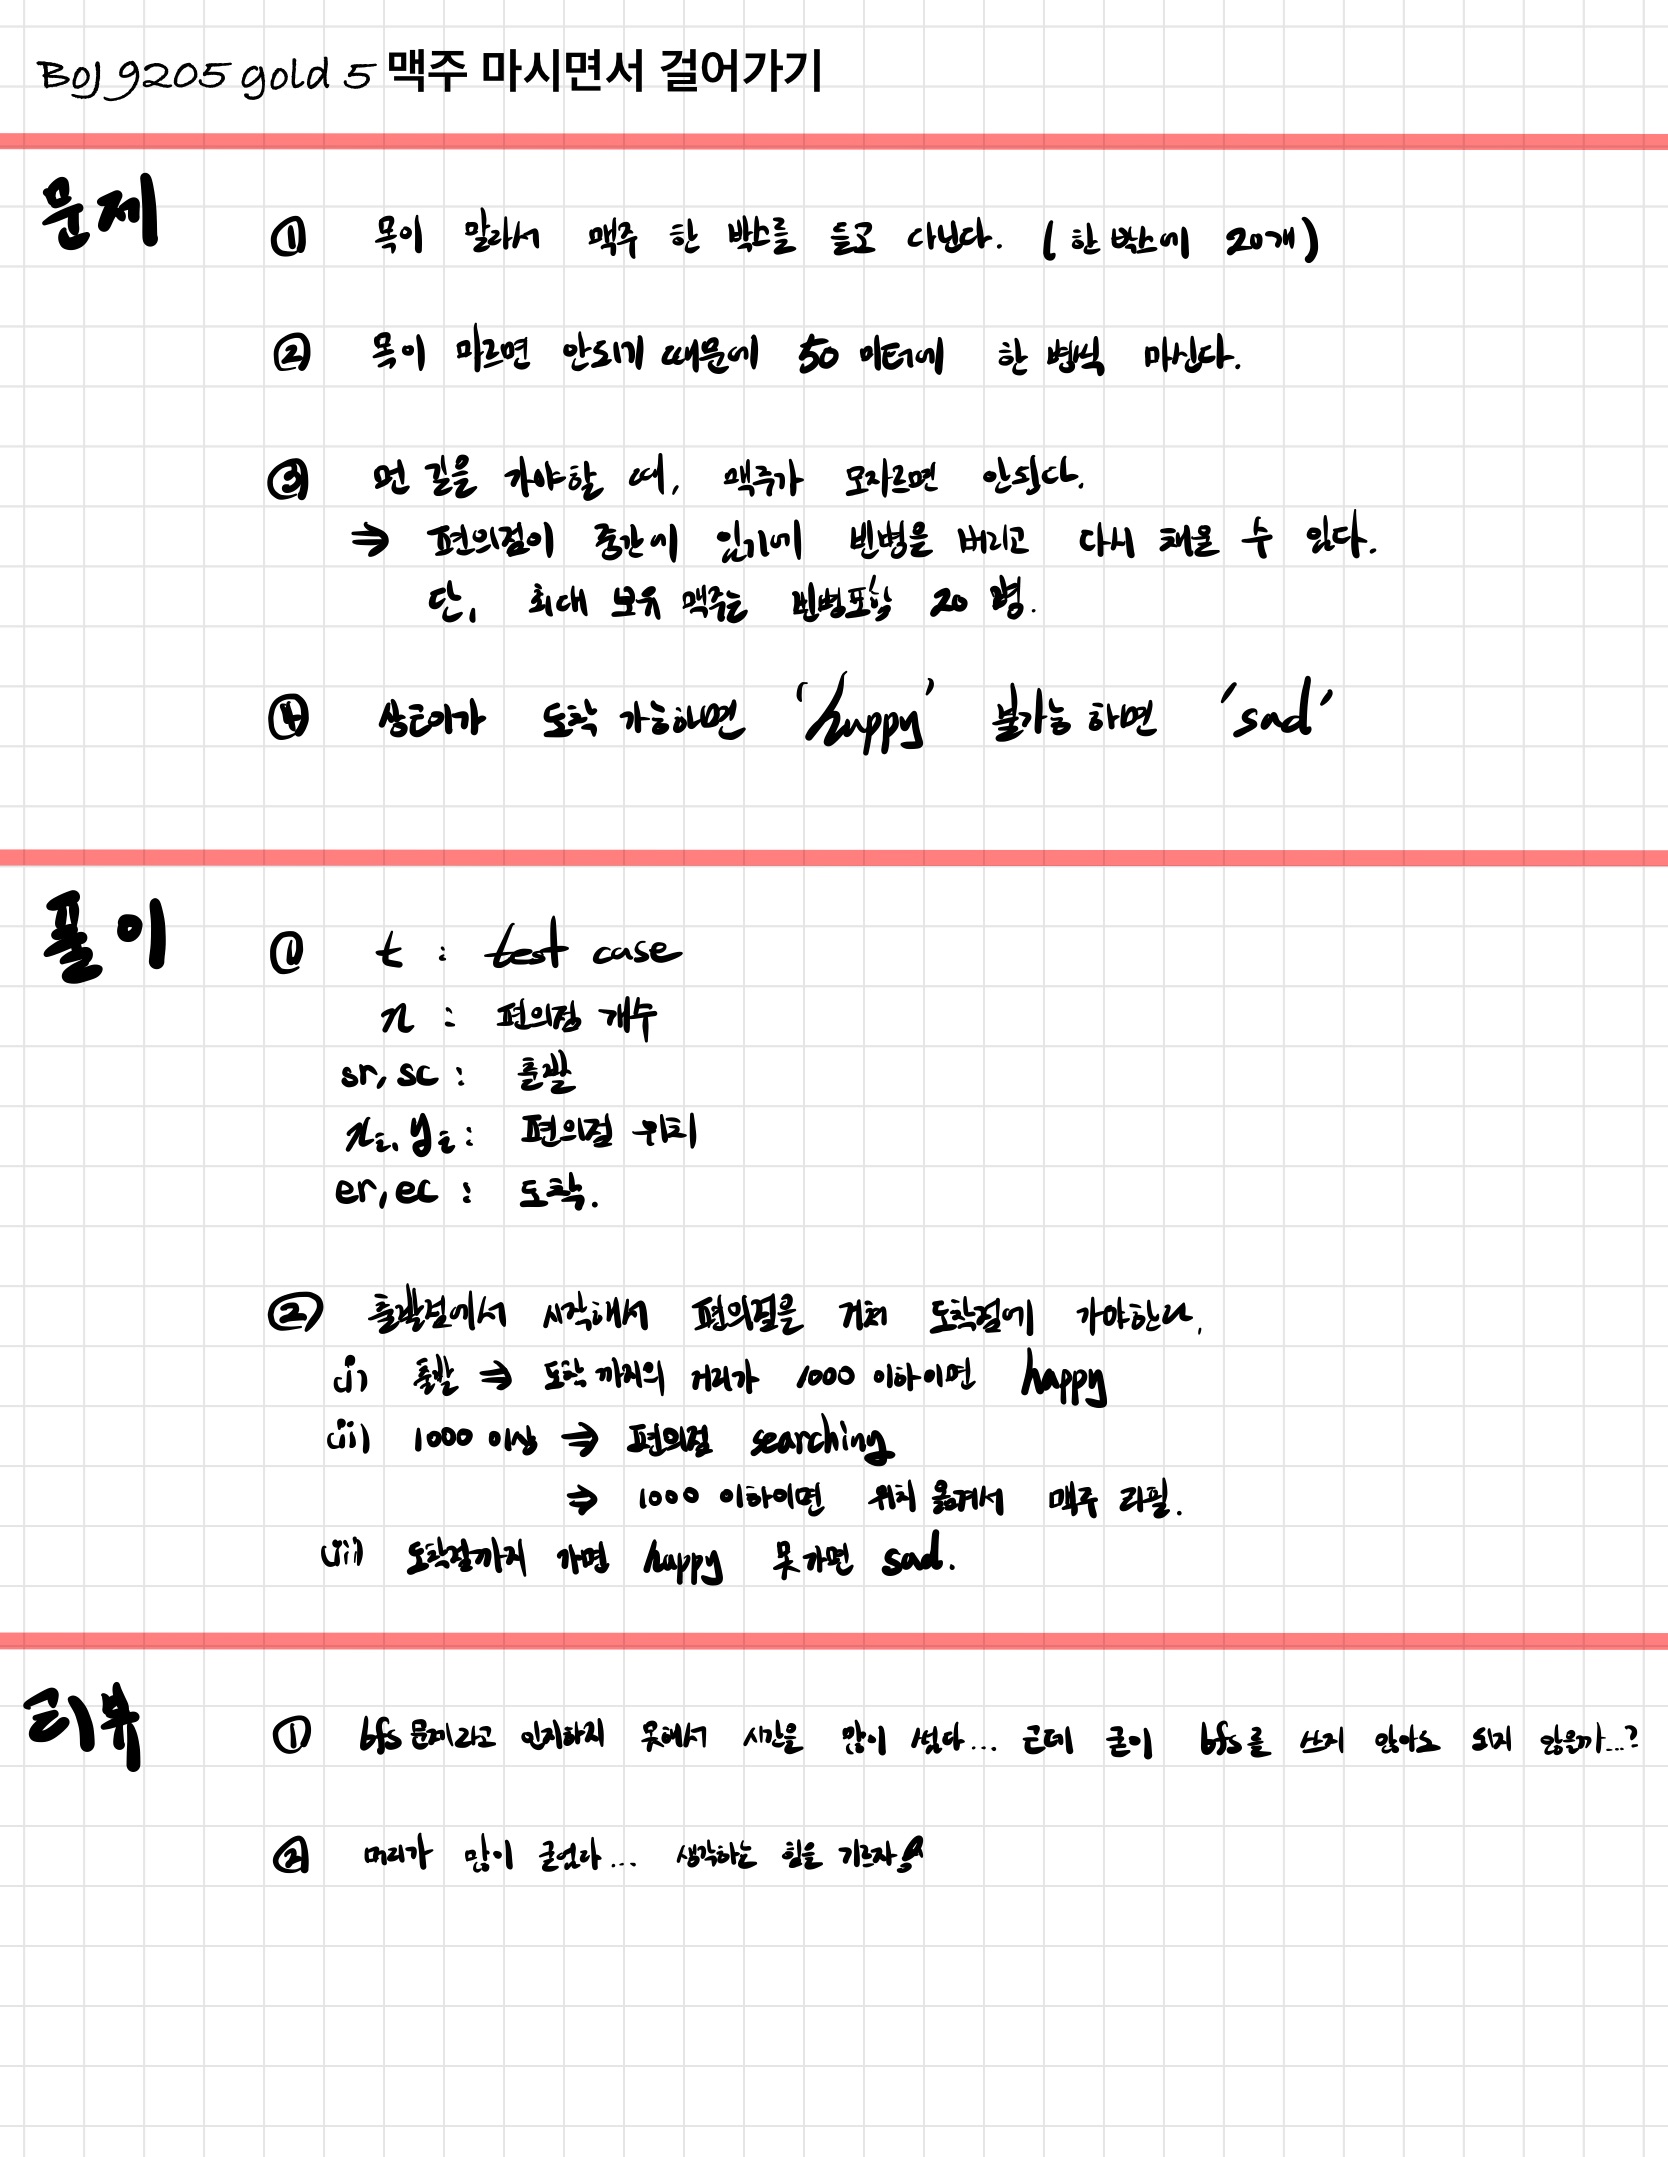 BOJ 9205 gold 5 맥주 마시면서 걸어가기
문제
① 목이 말라서 맥주 한 박스를 들고 다닌다. (한 박스에 20개)
② 목이 마르면 안되기 때문에 50 미터에 한 병씩 마신다.
③ 먼 길을 가야할 때, 맥주가 모자르면 안된다.
⇒ 편의점이 중간에 있기에 빈병을 버리고 다시 채울 수 있다.
단, 최대 보유 맥주는 빈병포함 20 병.
④ 상태가 도착 가능하면 'happy' 불가능 하면 'sad'
풀이
① t : test case
n : 편의점 개수
sr, sc : 출발
xi, yi : 편의점 위치
er, ec : 도착.
② 출발점에서 시작해서 편의점을 거쳐 도착점에 가야한다.
i) 출발 ⇒ 도착 까지의 거리가 1000 이하이면 happy
ii) 1000 이상 ⇒ 편의점 searching
⇒ 1000 이하이면 위치 옮겨서 맥주 리필.
iii) 도착점까지 가면 happy 못가면 sad.
리뷰
① bfs 문제라고 인지하지 못해서 시간을 많이 썼다... 근데 굳이 bfs를 쓰지 않아도 되지 않을까...?
② 머리가 많이 굳었다... 생각하는 힘을 기르자!